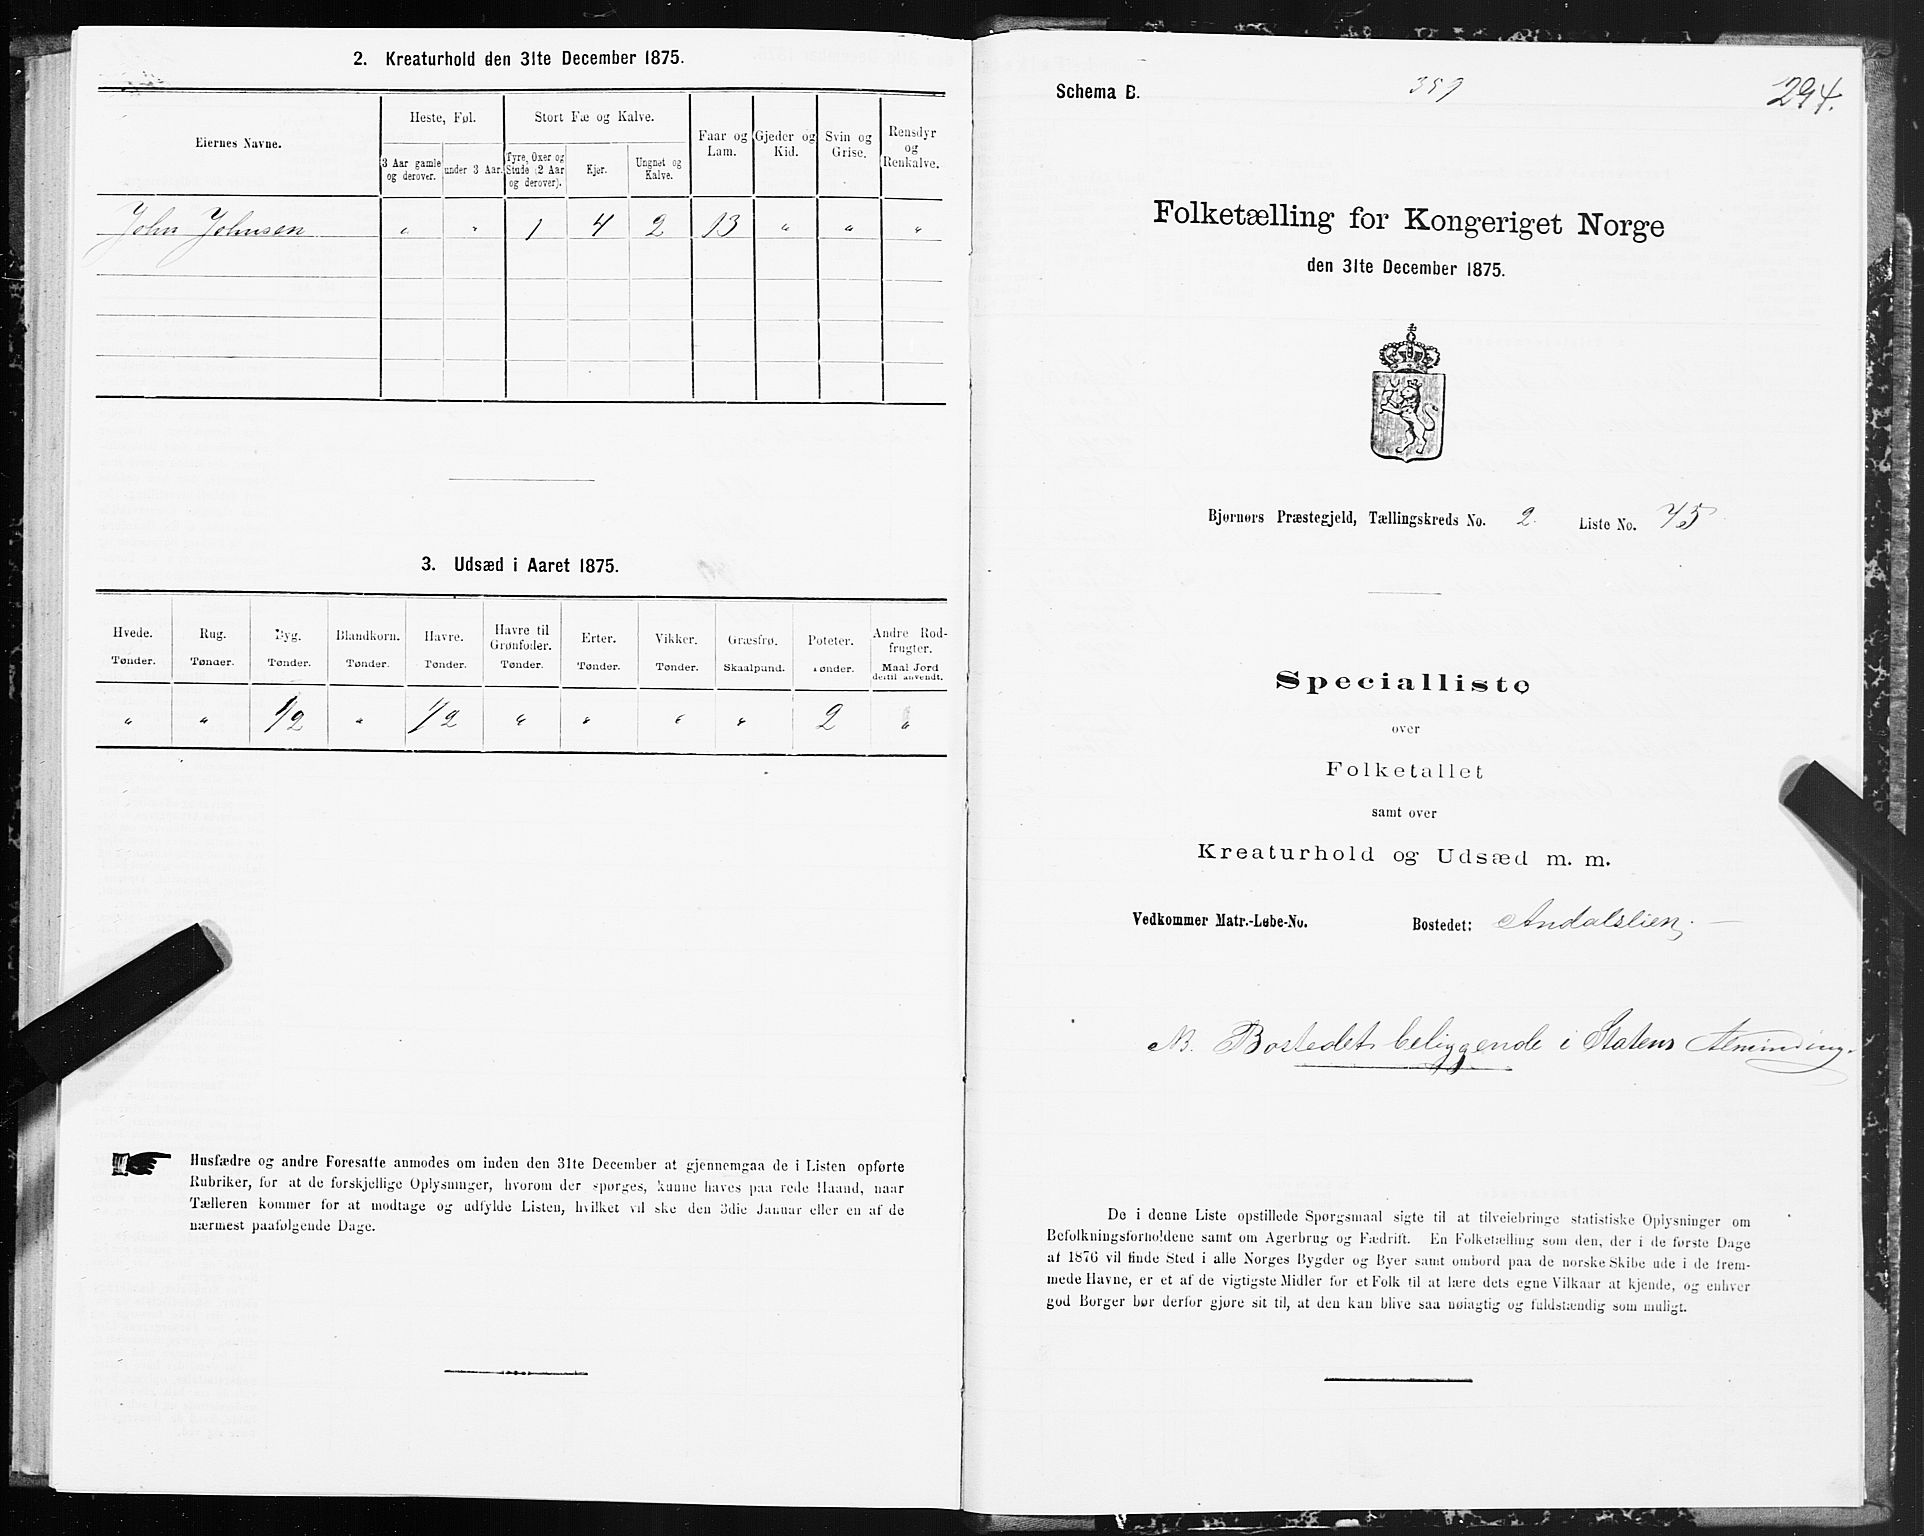 2. Kreaturhold den 31te December 1875.
Eiernes Navne.
Heste, Føl.
Stort Fæ og Kalve.
Faar og Lam.
Gjeder og Kid.
Svin og Grise.
Rensdyr og Renkalve.
3 Aar gamle og derover.
under 3 Aar.
Tyre, Oxer og Stude (2 Aar og derover).
Kjør.
Ungnøt og Kalve.
John Johnsen " " 1 4 2 13 " " "
3. Udsæd i Aaret 1875.
Hvede. Rug. Byg. Blandkorn. Havre. Havre til Grønfoder. Erter. Vikker. Græsfrø. Poteter. Andre Rodfrugter.
Tønder. Tønder. Tønder. Tønder. Tønder. Tønder. Tønder. Tønder. Skaalpund. Tønder. Maal Jord dertil anvendt.
" " 1/2 " 1/2 " " " " 2 "
Husfædre og andre Foresatte anmodes om inden den 31te December at gjennemgaa de i Listen opførte
Rubriker, for at de forskjellige Oplysninger, hvorom der spørges, kunne haves paa rede Haand, naar
Tælleren kommer for at modtage og udfylde Listen, hvilket vil ske den 3die Januar eller en af de
nærmest paafølgende Dage.
Schema B.
359
294.
Folketælling for Kongeriget Norge
den 31te December 1875.
Bjørnørs Præstegjeld, Tællingskreds No. 2. Liste No. 75
Specialliste
over
Folketallet
samt over
Kreaturhold og Udsæd m. m.
Vedkommer Matr.-Løbe-No. Bostedet: Andalslien.
NB. Bostedet beliggende i Statens Alminding.
De i denne Liste opstillede Spørgsmaal sigte til at tilveiebringe statistiske Oplysninger om
Befolkningsforholdene samt om Agerbrug og Fædrift. En Folketælling som den, der i de første Dage
af 1876 vil finde Sted i alle Norges Bygder og Byer samt ombord paa de norske Skibe ude i de frem-
mede Havne, er et af de vigtigste Midler for et Folk til at lære dets egne Vilkaar at kjende, og enhver
god Borger bør derfor gjøre sit til, at den kan blive saa nøiagtig og fuldstændig som muligt.